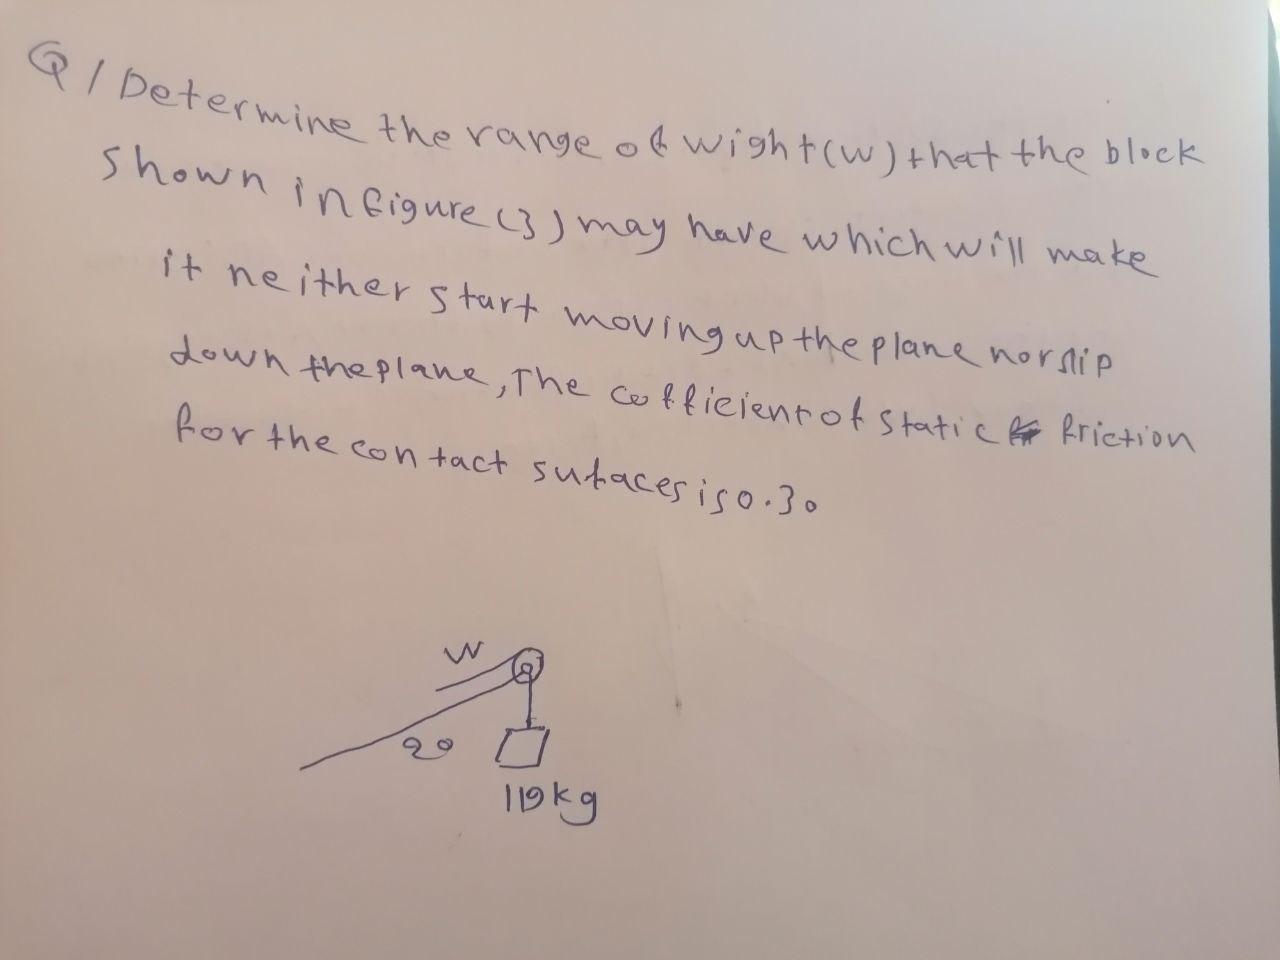 Q/Determine the range of wight(w) that the block
shown in figure (3) may have which will make
it neither start moving up the plane nor slip
down the plane, The cofficient of static friction
for the contact sufaces is 0.30
W
20
110kg